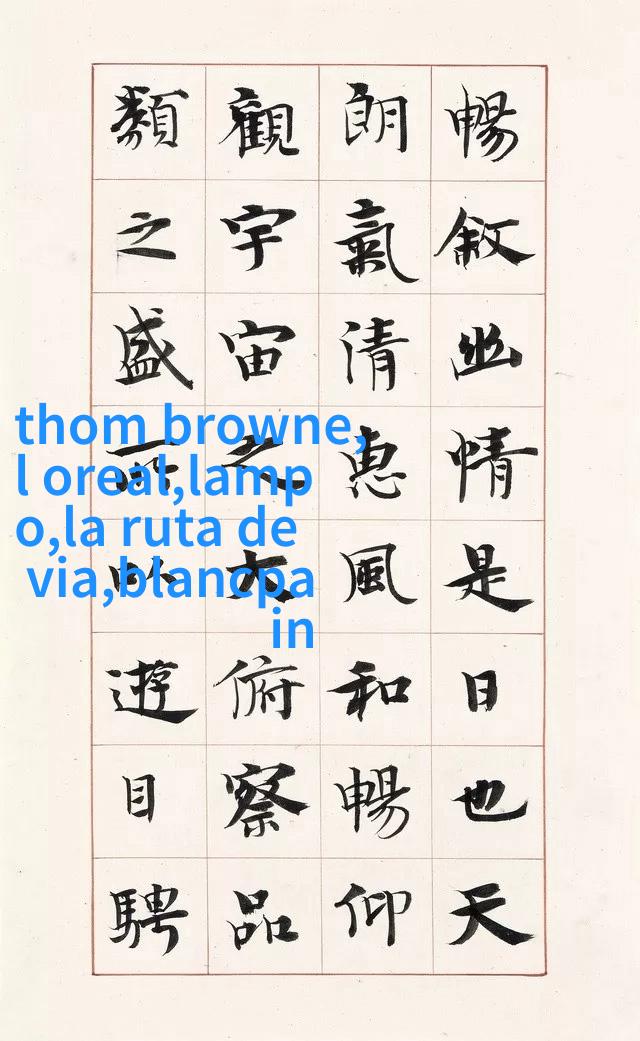 暢敘幽情是日也天
朗氣清惠風和暢仰
觀宇宙之大俯察品
類之盛所以遊目騁
thom browne,
l oreal,lamp
o,la ruta de
via,blancpa
in